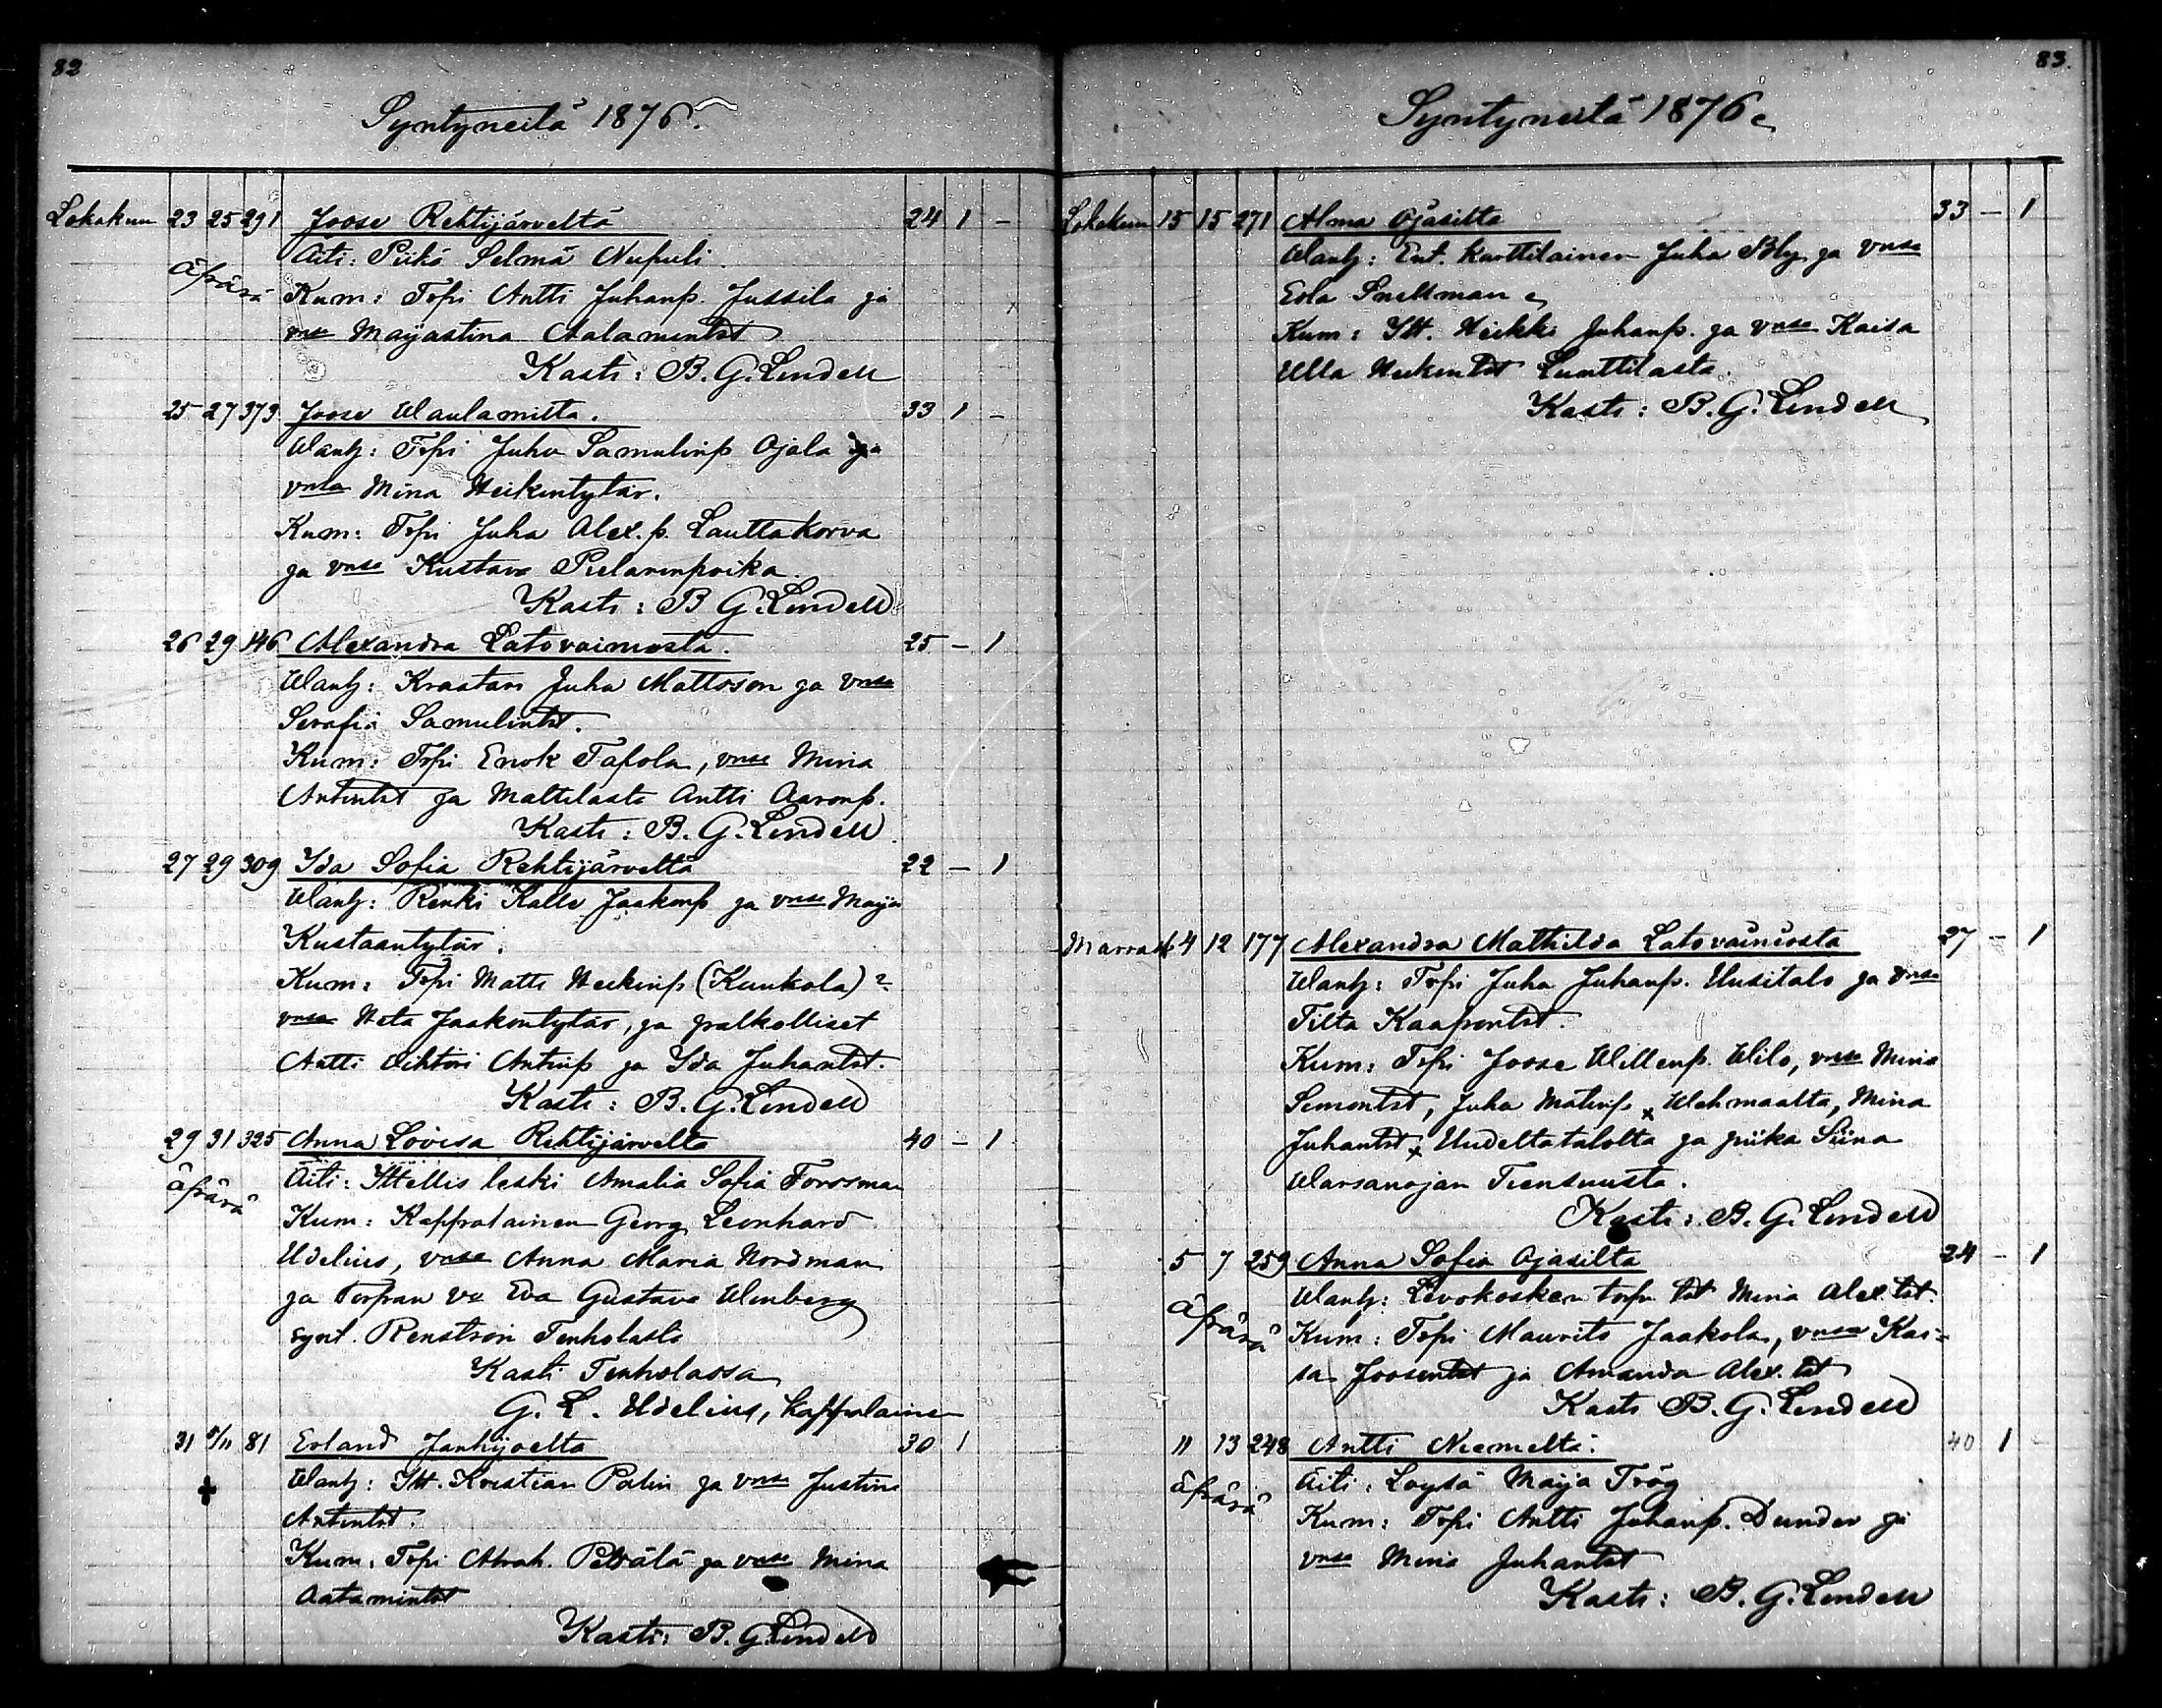 82
Syntyneitä 1876.
Lokakuu 23 25 291 Joose Rehtijärveltä 24 1 -
Äiti: Piika Selmä Nupuli.
äpärä
Kum: Topi Antti Juhanp. Jussila ja
vnsa Maijastina Aatamintst
Kasti: B. G. Lindell
25 27 373 Joose Waulamilta. 33 1 -
Wanh: Topi Juha Samulinp Ojala ja
vnsa Mina Heikintytär.
Kum: Topi Juha Alex.p. Lauttakorva
ja vnsa Kustava
Kasti: B G. Lindell
26 29 146 Alexandra Latovainiosta. 25 - 1
Wanh: Kraatari Juha Mattsson ja vnsa
Serafia Samulintst.
Kum: Topi Enok Tapola, vnsa Mina
Antintst ja Mattilasta Antti Aaronp.
Kasti: B. G. Lindell
27 29 309 Ida Sofia Rehtijärveltä 22 - 1
Wanh: Renki Kalle Jaakonp ja vnsa Maija
Kustaantytär.
Kum: Topi Matti Heikinp (Kunkola)?
vnsa Heta Jaakontytär, ja palkolliset
Antti Vihtori Antinp ja Ida Juhantst.
Kasti: B. G. Lindell
29 31 325 Anna Lovisa Rehtijärveltä 40 - 1
Äiti: Ittellis leski Amalia Sofia Forssman
äpärä
Kum: Kappalainen Georg Leonhard
Udelius, vnsa Anna Maria Nordman
ja Torpan va Eva Gustava Wenberg
synt. Renström Tenholasta
Kasti Tenholassa
G. L. Udelius, kappalainen
31 5/11 81 Erland Janhijoelta 30 1
Wanh: Itt. Kristian Palin ja vnsa Justina
Antintst.
Kum: Topi Abrah. Peträlä ja vnsa Mina
Aatamintst
Kasti: B. G. Lindell
83.
Syntyneitä 1876.
Lokakuu 15 15 271 Alma Ojasilta 33 - 1
Wanh: Ent. Karttilainen Juha Bly ja vnsa
Eola Snellman
Kum: Itt. Heikki Juhanp. ja vnsa Kaisa
Ulla Heikintst Lunttilasta.
Kasti: B. G. Lindell
Marrask 4 12 177 Alexandra Mathilda Latovainiosta 27 - 1
Wanh: Topi Juha Juhanp. Uusitalo ja vnsa
Tilta Kaaprontst.
Kum: Topi Joose Willenp. Wilo, vnsa Mina
Simontst, Juha Matinp x Wehmaalta, Mina
Juhantst x Uudeltatalolta ja piika Siina
Warsanojan Tiensuusta.
Kasti: B. G. Lindell
5 7 259 Anna Sofia Ojasilta 24 - 1
Wanh: Levokosken torp. tst Mina Alex.tst.
äpärä
Kum: Topi Maurits Jaakola, vnsa Kai-
sa Joosentst ja Amanda Alex. tst
Kasti B. G. Lindell
11 13 248 Antti Niemeltä. 40 1 -
Äiti: Loysä Maija Trög
äpärä
Kum: Topi Antti Juhanp. Dunder ja
vnsa Mina Juhantst
Kasti: B. G. Lindell